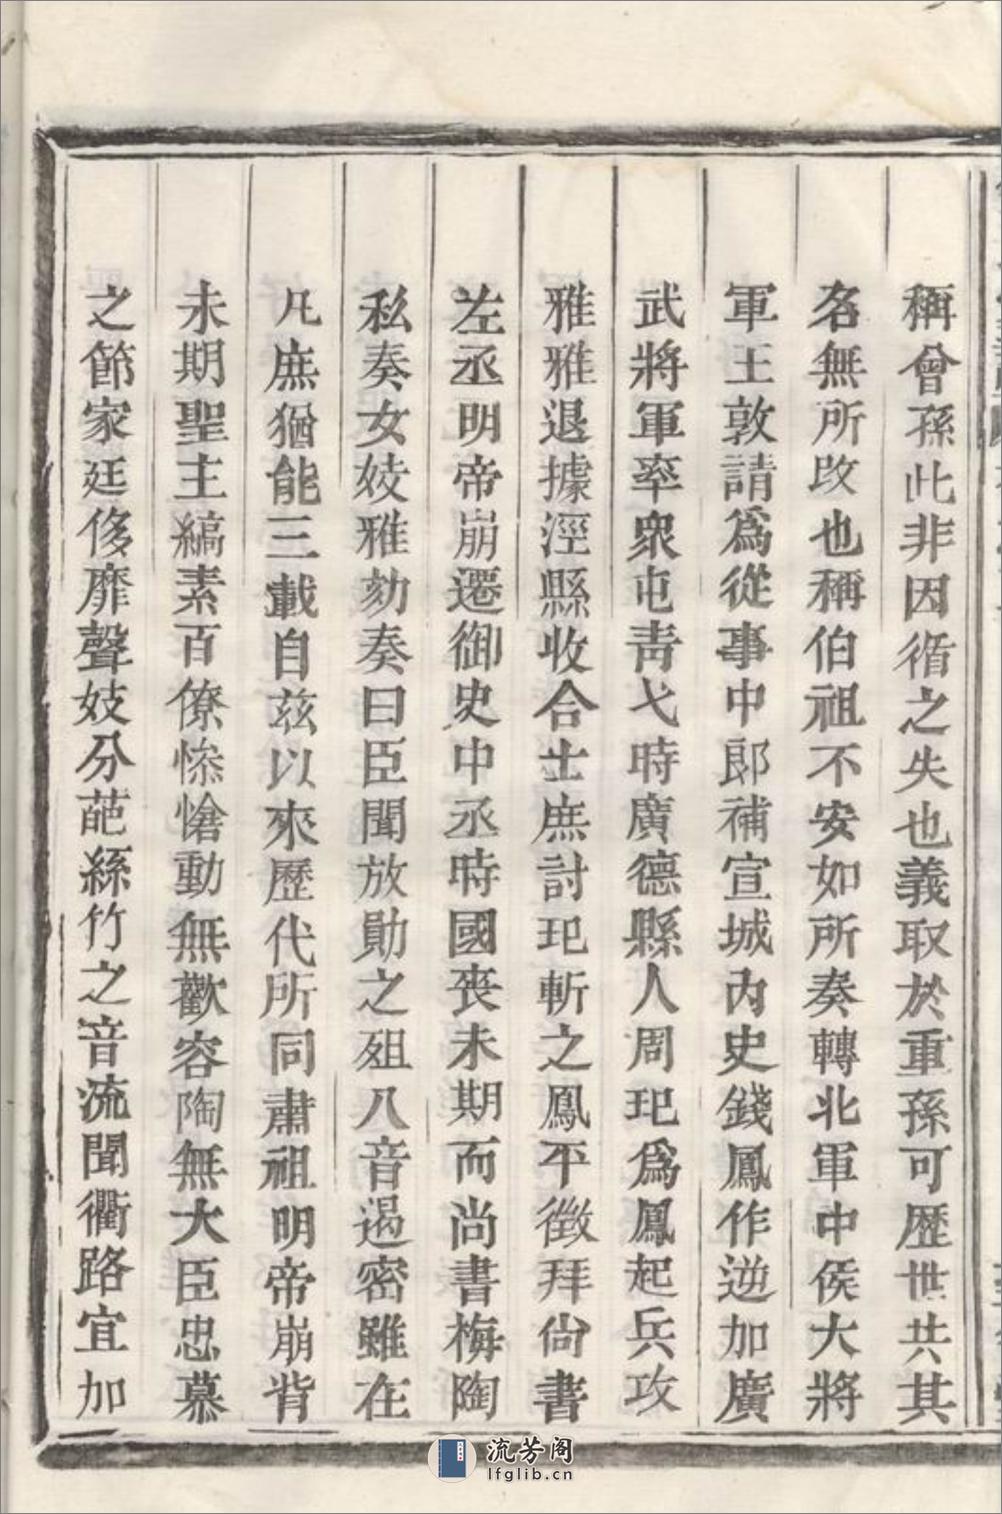 稱曾孫此非因循之失也義取於重孫可歷世共其
名無所改也稱伯祖不安如所奏轉北軍中侯大將
軍王敦請爲從事中郎補宣城內史錢鳳作逆加廣
武將軍率衆屯靑弋時廣德縣人周玘爲鳳起兵攻
雅雅退據涇縣收合士庶討玘斬之鳳平徵拜尙書
左丞明帝崩遷御史中丞時國喪未期而尚書梅陶
私奏女妓雅劾奏曰臣聞放勛之殂八音遏密雖在
凡庶猶能三載自茲以來歷代所同肅祖明帝崩背
未期聖主縞素百僚慘愴動無歡容陶無大臣忠慕
之節家廷侈靡聲妓分葩絲竹之音流聞衢路宜加
流芳阁
lfglib.cn